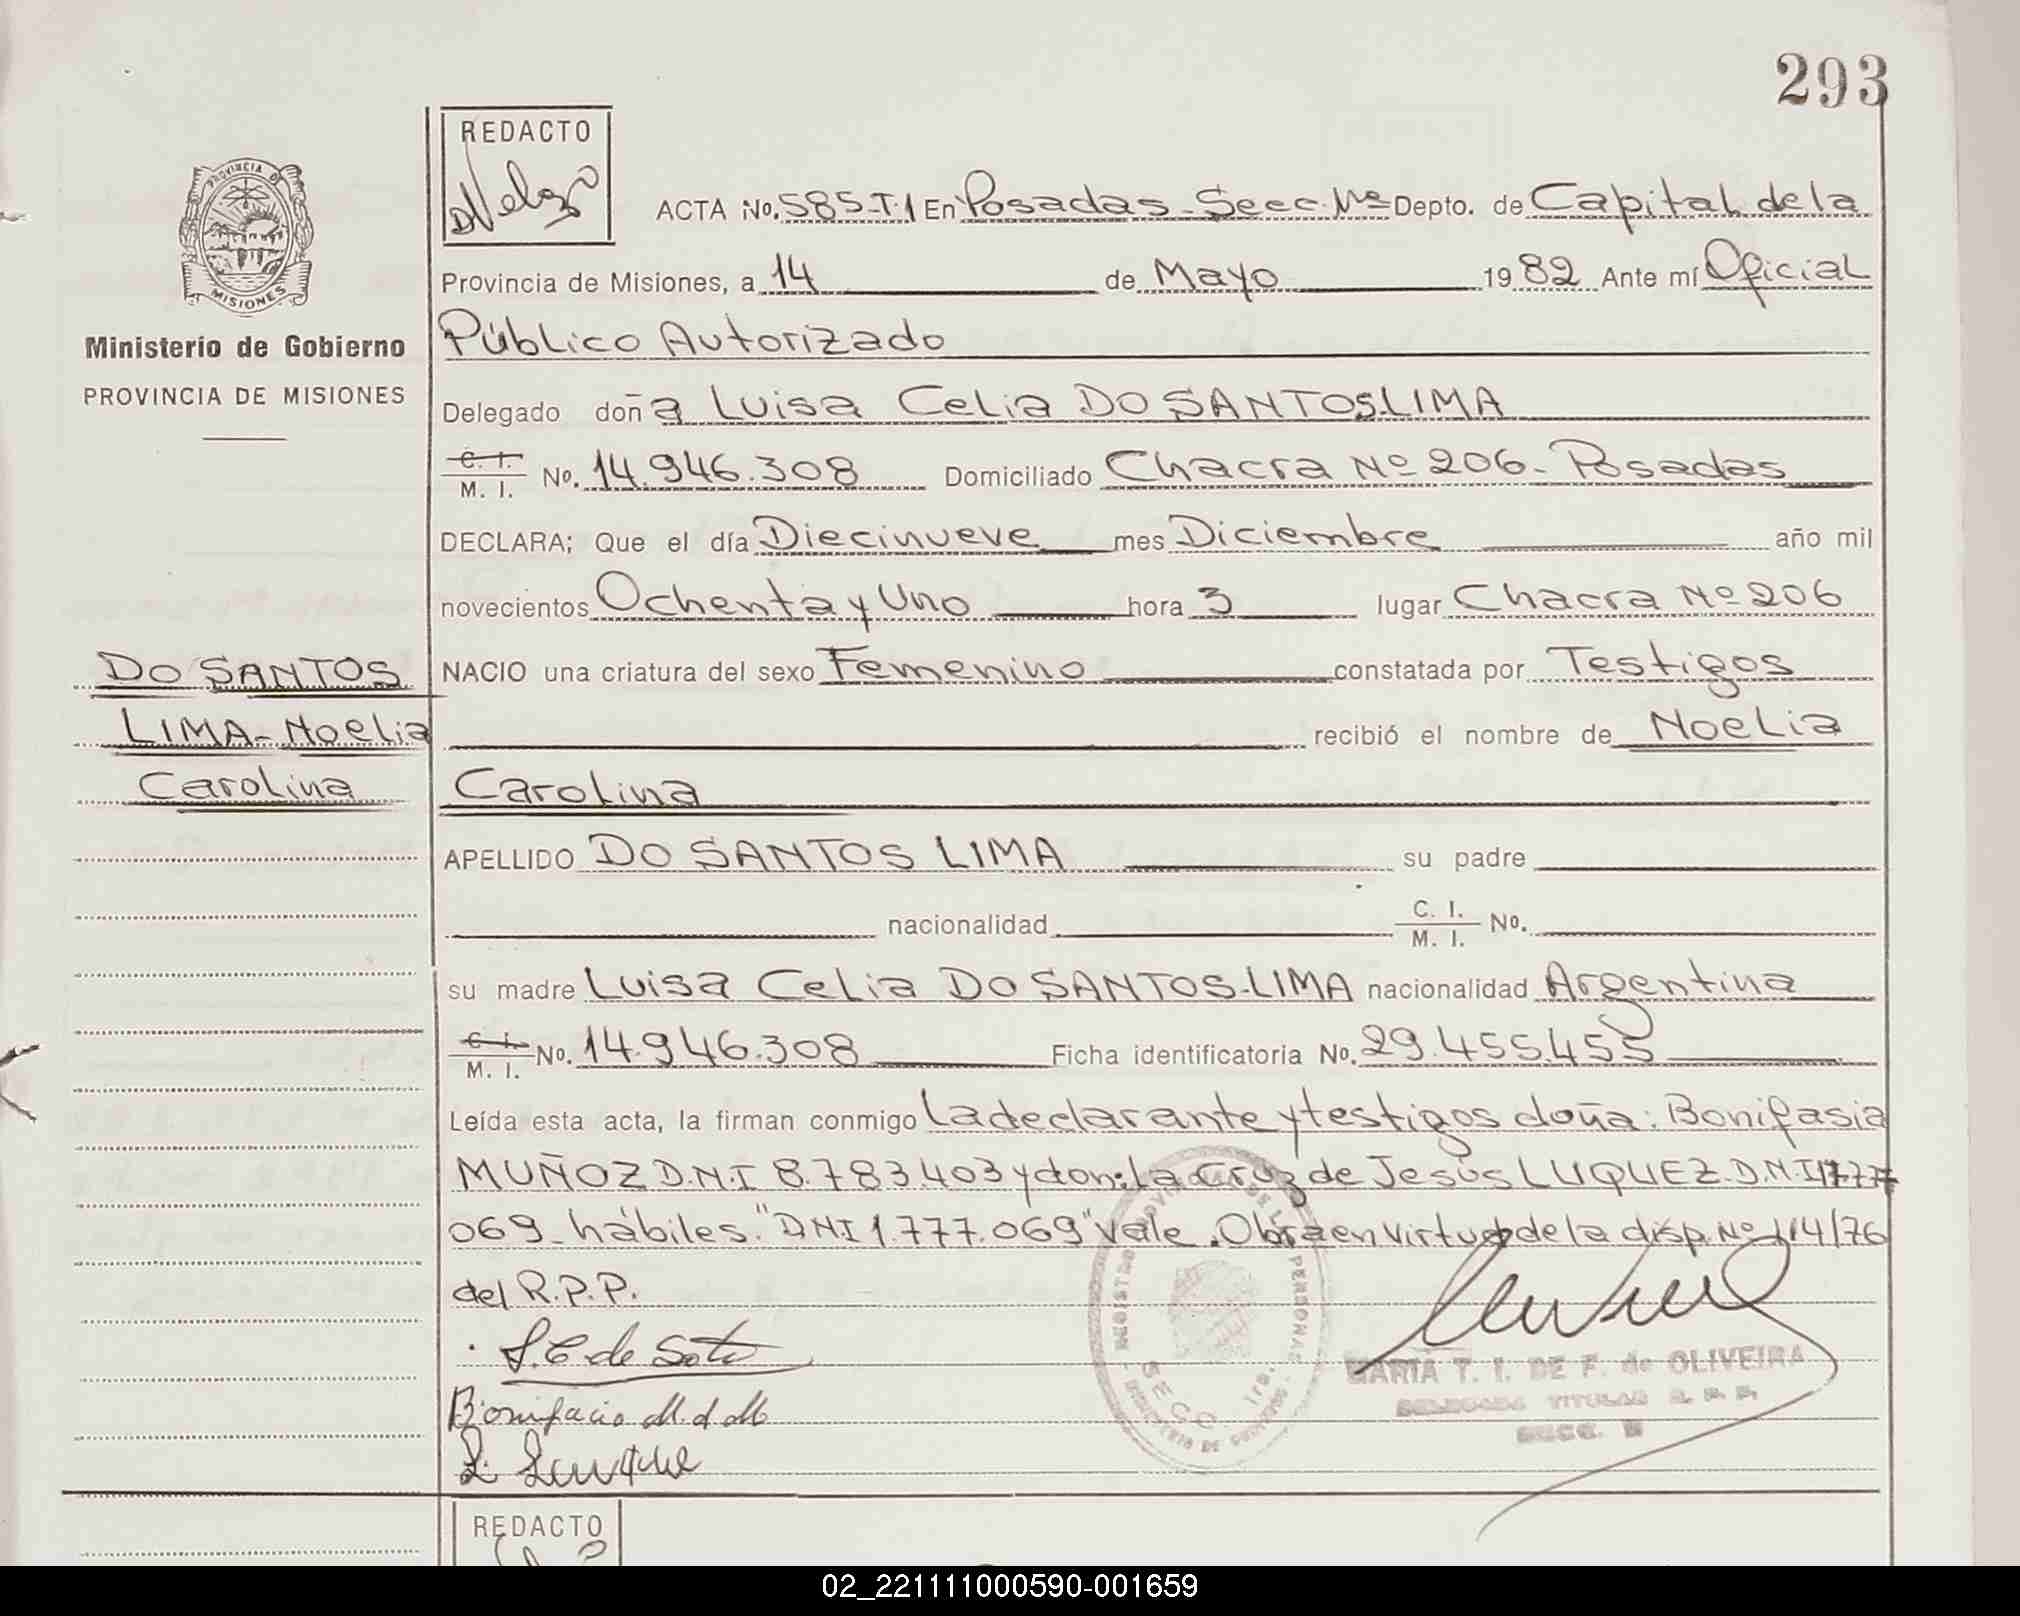 293
REDACTO
ACTA No. 585-T.1 En Posadas - Secc. Depto. de Capital de la
PROVINCIA DE
MISIONES
Provincia de Misiones, a 14 de Mayo 1982 Ante mí Oficial
Ministerio de Gobierno
PROVINCIA DE MISIONES
Público Autorizado
Delegado doña Luisa Celia DO SANTOS LIMA
C. I. M. I. No. 14.946.308 Domiciliado Chacra Nº 206 - Posadas
DECLARA; Que el día Diecinueve mes Diciembre año mil
novecientos Ochenta y Uno hora 3 lugar Chacra Nº 206
NACIO una criatura del sexo Femenino constatada por Testigos
recibió el nombre de Noelia
Carolina
DO SANTOS
LIMA - Noelia
Carolina
APELLIDO DO SANTOS LIMA su padre
nacionalidad C. I. M. I. No.
su madre Luisa Celia DO SANTOS-LIMA nacionalidad Argentina
C. I. M. I. No. 14.946.308 Ficha identificatoria No. 29.455.455
Leída esta acta, la firman conmigo La declarante y testigos doña: Bonifasia
MUÑOZ D.N.I 8.783.403 y don: La Cruz de Jesús LUQUEZ. D.N.I
069 - hábiles. "D.N.I 1.777.069" Vale. Obra en virtud de la disp. Nº 114/76
del R.P.P.
L. C. de Soto
Bonifacio M. d M
MARIA T. I. DE F. de OLIVEIRA
DELEGADA TITULAR R. P. P.
SECC.
REDACTO
02_221111000590-001659